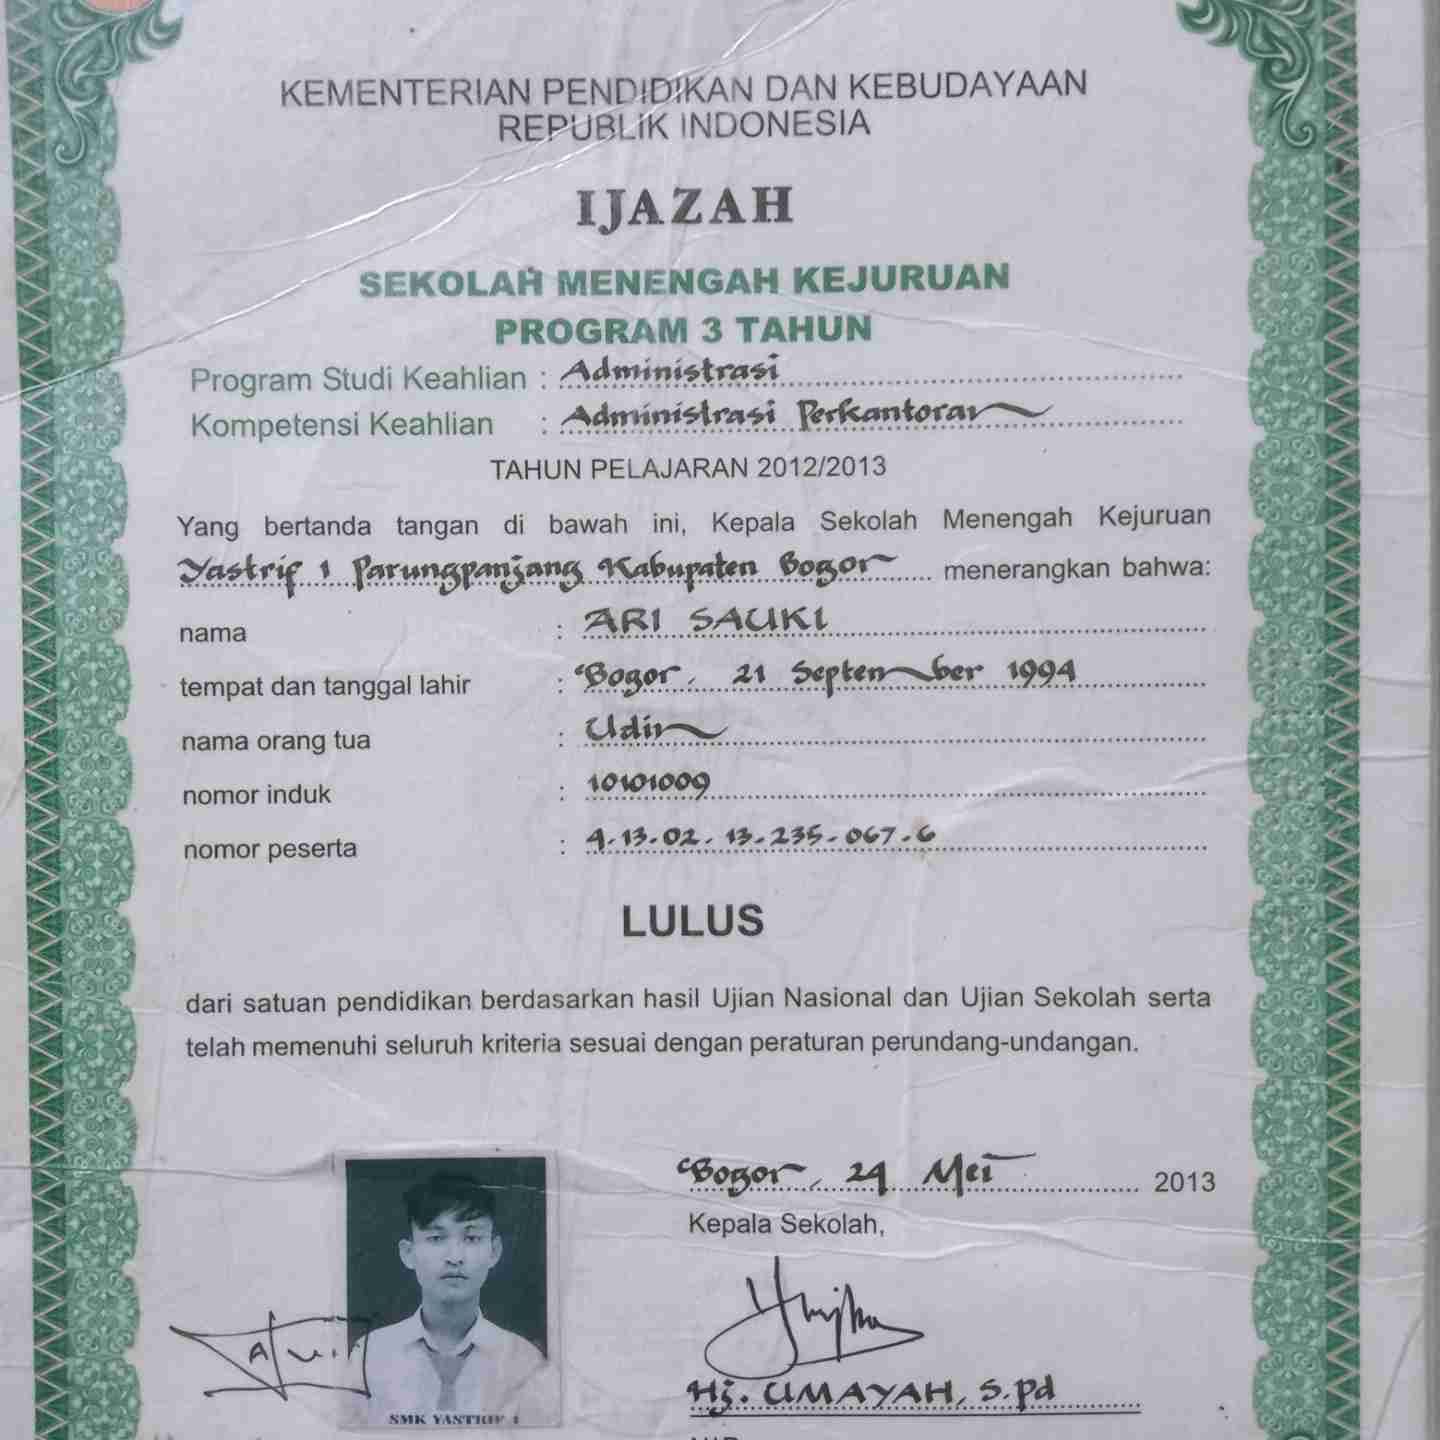 KEMENTERIAN PENDIDIKAN DAN KEBUDAYAAN
REPUBLIK INDONESIA
IJAZAH
SEKOLAH MENENGAH KEJURUAN
PROGRAM 3 TAHUN
Program Studi Keahlian : Administrasi
Kompetensi Keahlian : Administrasi Perkantoran
TAHUN PELAJARAN 2012/2013
Yang bertanda tangan di bawah ini, Kepala Sekolah Menengah Kejuruan
Yastrif 1 Parungpanjang Kabupaten Bogor menerangkan bahwa:
nama : ARI SAUKI
tempat dan tanggal lahir : Bogor, 21 September 1994
nama orang tua : Udin
nomor induk : 10101009
nomor peserta : 4-13-02-13-235-067-6
LULUS
dari satuan pendidikan berdasarkan hasil Ujian Nasional dan Ujian Sekolah serta
telah memenuhi seluruh kriteria sesuai dengan peraturan perundang-undangan.
Bogor, 24 Mei 2013
Kepala Sekolah,
Hj. UMAYAH, S.Pd
SMK YASTRIF 1